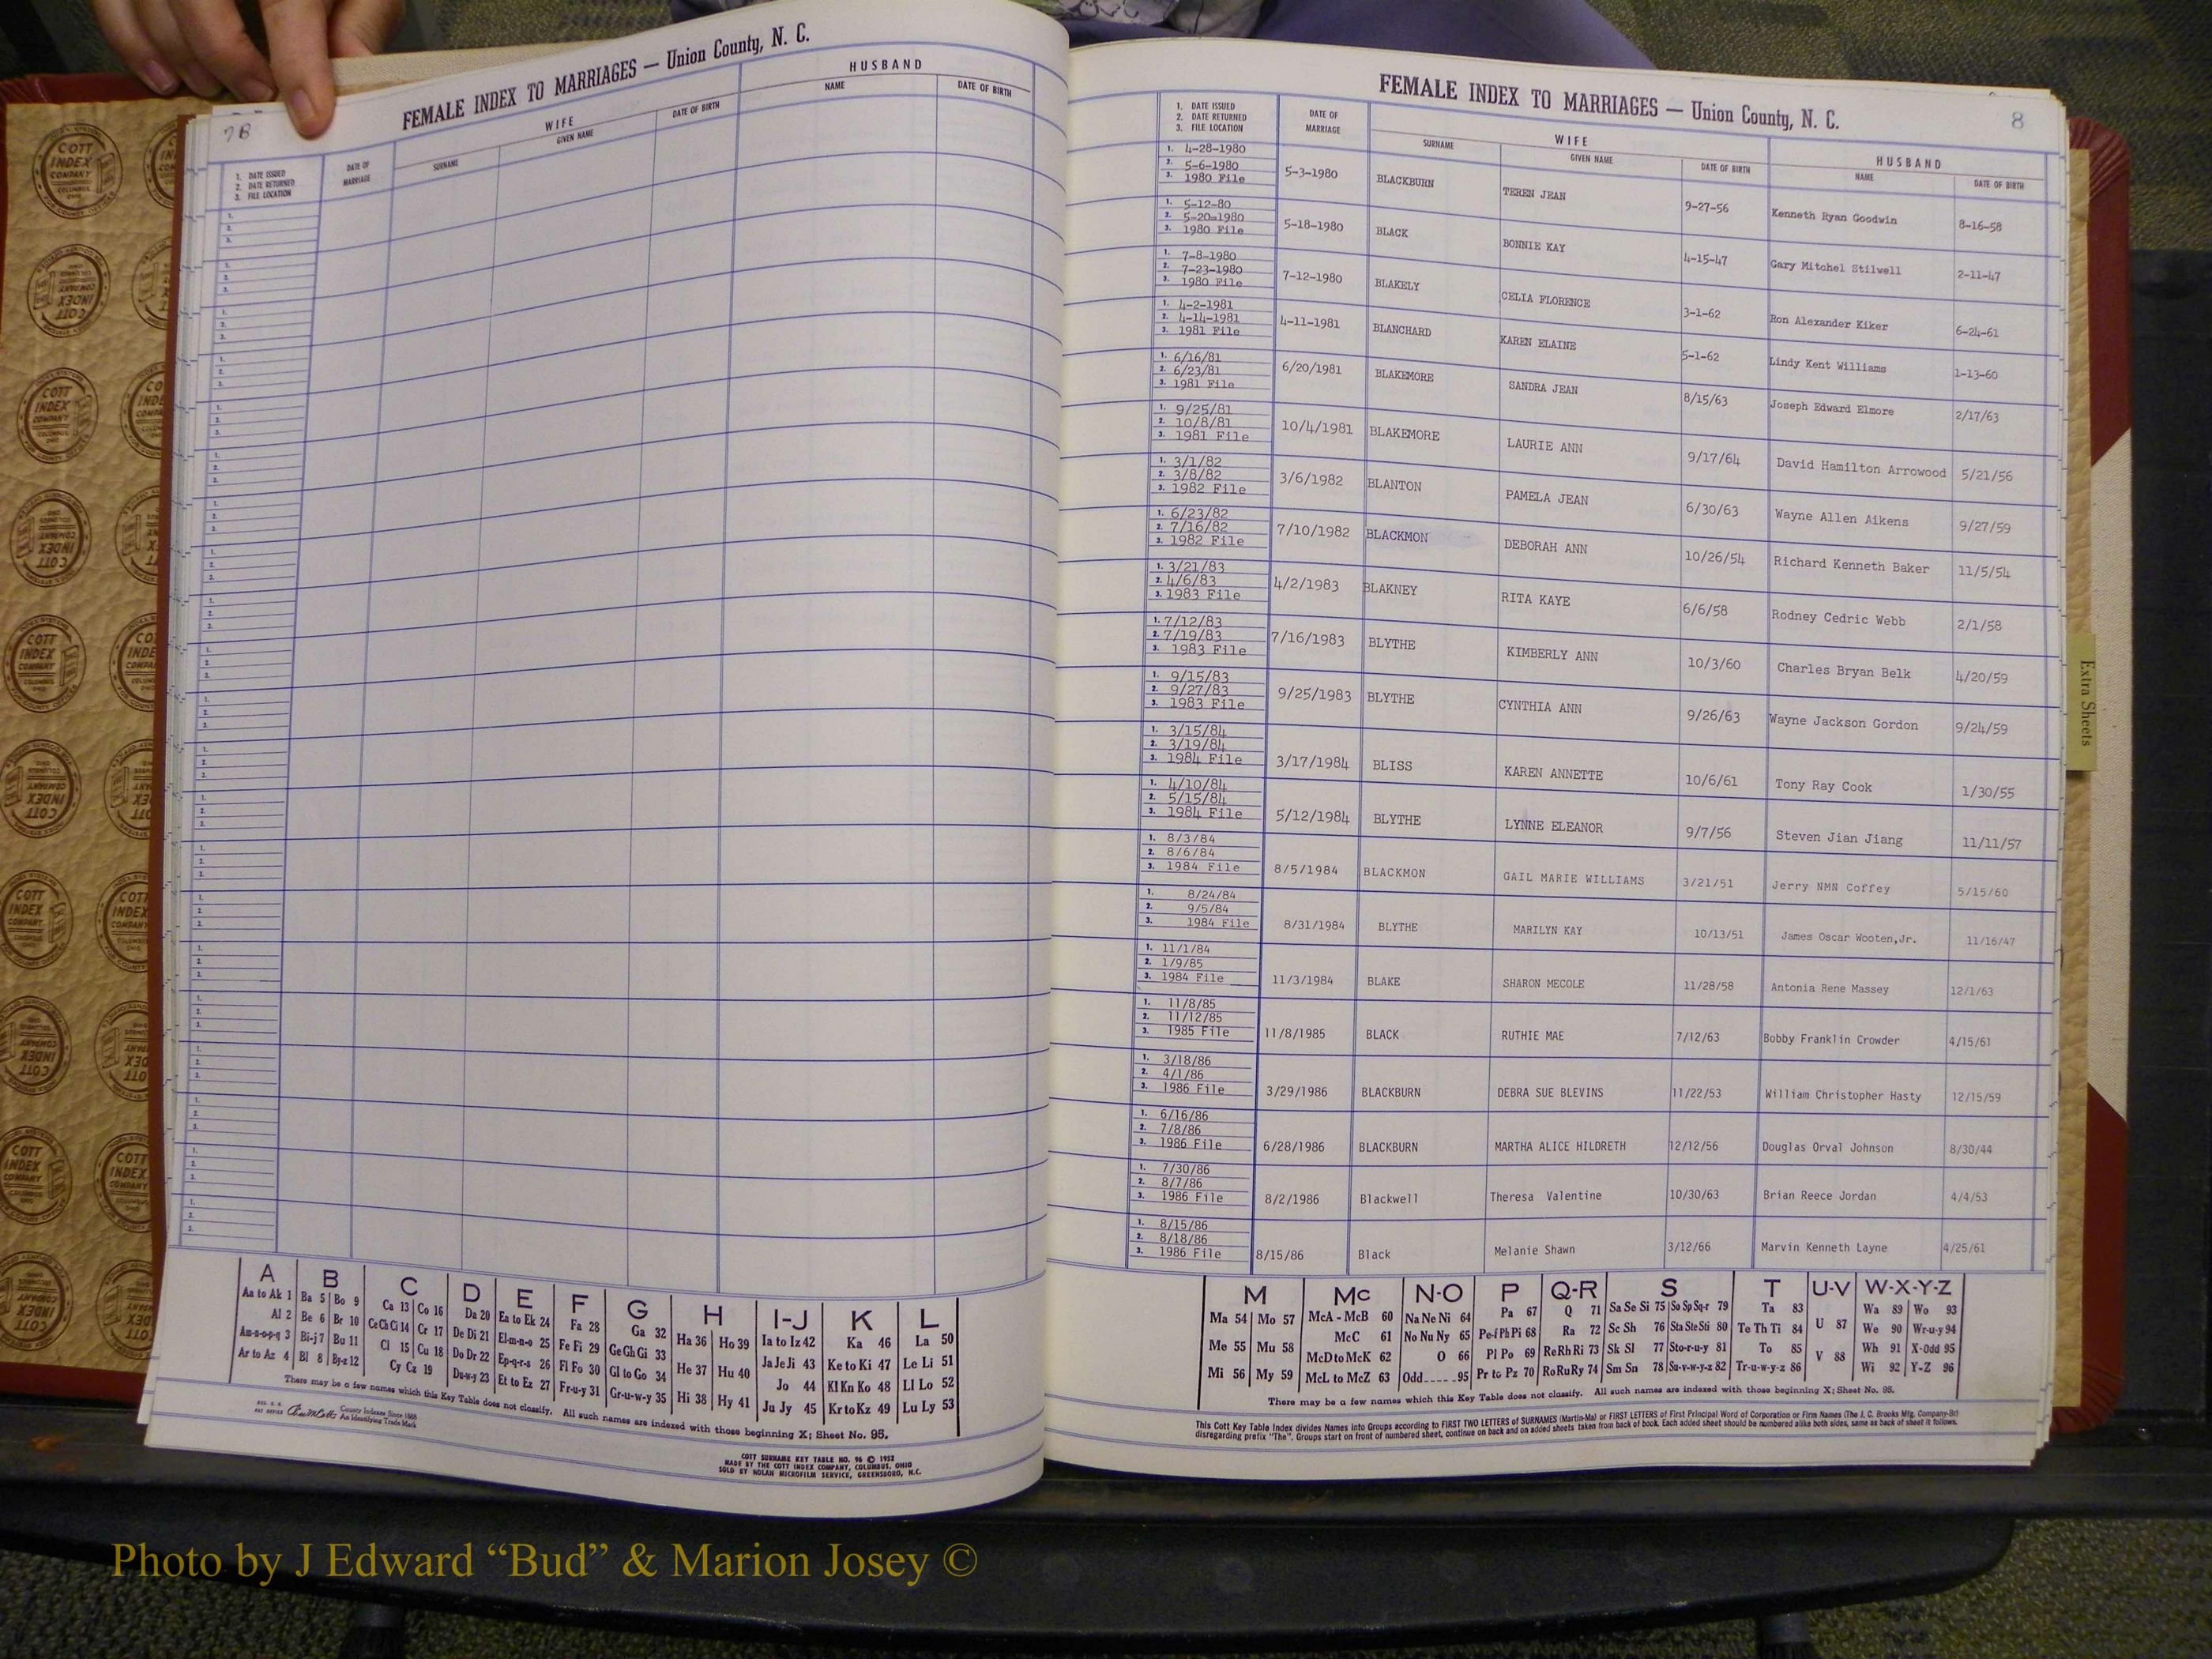 7B
FEMALE INDEX TO MARRIAGES — Union County, N. C.
1. DATE ISSUED
2. DATE RETURNED
3. FILE LOCATION
DATE OF MARRIAGE
WIFE
SURNAME GIVEN NAME DATE OF BIRTH
HUSBAND
NAME DATE OF BIRTH
A B C D E F G H I-J K L
Aa to Ak 1 Ba 5 Bo 9 Ca 13 Co 16 Da 20 Ea to Ek 24 Fa 28 Ga 32 Ha 36 Ho 39 Ia to Iz 42 Ka 46 La 50
Al 2 Be 6 Br 10 Ce Ch Ci 14 Cr 17 De Di 21 El-m-n-o 25 Fe Fi 29 Ge Gh Gi 33 He 37 Hu 40 Ja Je Ji 43 Ke to Ki 47 Le Li 51
Am-n-o-p-q 3 Bi-j 7 Bu 11 Cl 15 Cu 18 Do Dr 22 Ep-q-r-s 26 Fl Fo 30 Gl to Go 34 Hi 38 Hy 41 Jo 44 Kl Kn Ko 48 Ll Lo 52
Ar to Az 4 Bl 8 By-z 12 Cy Cz 19 Du-w-y 23 Et to Ez 27 Fr-u-y 31 Gr-u-w-y 35 Ju Jy 45 Kr to Kz 49 Lu Ly 53
There may be a few names which this Key Table does not classify. All such names are indexed with those beginning X; Sheet No. 95.
County Indexes Since 1888
An Identifying Trade Mark
COTT SURNAME KEY TABLE NO. 96 © 1952
MADE BY THE COTT INDEX COMPANY, COLUMBUS, OHIO
SOLD BY NOLAN MICROFILM SERVICE, GREENSBORO, N.C.
FEMALE INDEX TO MARRIAGES — Union County, N. C.
8
1. DATE ISSUED
2. DATE RETURNED
3. FILE LOCATION
DATE OF MARRIAGE
WIFE
SURNAME GIVEN NAME DATE OF BIRTH
HUSBAND
NAME DATE OF BIRTH
1. 4-28-1980
2. 5-6-1980
3. 1980 File
5-3-1980 BLACKBURN TEREN JEAN 9-27-56 Kenneth Ryan Goodwin 8-16-58
1. 5-12-80
2. 5-20-1980
3. 1980 File
5-18-1980 BLACK BONNIE KAY 4-15-47 Gary Mitchel Stilwell 2-11-47
1. 7-8-1980
2. 7-23-1980
3. 1980 File
7-12-1980 BLAKELY CELIA FLORENCE 3-1-62 Ron Alexander Kiker 6-24-61
1. 4-2-1981
2. 4-14-1981
3. 1981 File
4-11-1981 BLANCHARD KAREN ELAINE 5-1-62 Lindy Kent Williams 1-13-60
1. 6/16/81
2. 6/23/81
3. 1981 File
6/20/1981 BLAKEMORE SANDRA JEAN 8/15/63 Joseph Edward Elmore 2/17/63
1. 9/25/81
2. 10/8/81
3. 1981 File
10/4/1981 BLAKEMORE LAURIE ANN 9/17/64 David Hamilton Arrowood 5/21/56
1. 3/1/82
2. 3/8/82
3. 1982 File
3/6/1982 BLANTON PAMELA JEAN 6/30/63 Wayne Allen Aikens 9/27/59
1. 6/23/82
2. 7/16/82
3. 1982 File
7/10/1982 BLACKMON DEBORAH ANN 10/26/54 Richard Kenneth Baker 11/5/54
1. 3/21/83
2. 4/6/83
3. 1983 File
4/2/1983 BLAKNEY RITA KAYE 6/6/58 Rodney Cedric Webb 2/1/58
1. 7/12/83
2. 7/19/83
3. 1983 File
7/16/1983 BLYTHE KIMBERLY ANN 10/3/60 Charles Bryan Belk 4/20/59
1. 9/15/83
2. 9/27/83
3. 1983 File
9/25/1983 BLYTHE CYNTHIA ANN 9/26/63 Wayne Jackson Gordon 9/24/59
1. 3/15/84
2. 3/19/84
3. 1984 File
3/17/1984 BLISS KAREN ANNETTE 10/6/61 Tony Ray Cook 1/30/55
1. 4/10/84
2. 5/15/84
3. 1984 File
5/12/1984 BLYTHE LYNNE ELEANOR 9/7/56 Steven Jian Jiang 11/11/57
1. 8/3/84
2. 8/6/84
3. 1984 File
8/5/1984 BLACKMON GAIL MARIE WILLIAMS 3/21/51 Jerry NMN Coffey 5/15/60
1. 8/24/84
2. 9/5/84
3. 1984 File
8/31/1984 BLYTHE MARILYN KAY 10/13/51 James Oscar Wooten,Jr. 11/16/47
1. 11/1/84
2. 1/9/85
3. 1984 File
11/3/1984 BLAKE SHARON MECOLE 11/28/58 Antonia Rene Massey 12/1/63
1. 11/8/85
2. 11/12/85
3. 1985 File
11/8/1985 BLACK RUTHIE MAE 7/12/63 Bobby Franklin Crowder 4/15/61
1. 3/18/86
2. 4/1/86
3. 1986 File
3/29/1986 BLACKBURN DEBRA SUE BLEVINS 11/22/53 William Christopher Hasty 12/15/59
1. 6/16/86
2. 7/8/86
3. 1986 File
6/28/1986 BLACKBURN MARTHA ALICE HILDRETH 12/12/56 Douglas Orval Johnson 8/30/44
1. 7/30/86
2. 8/7/86
3. 1986 File
8/2/1986 Blackwell Theresa Valentine 10/30/63 Brian Reece Jordan 4/4/53
1. 8/15/86
2. 8/18/86
3. 1986 File
8/15/86 Black Melanie Shawn 3/12/66 Marvin Kenneth Layne 4/25/61
M Mc N-O P Q-R S T U-V W-X-Y-Z
Ma 54 Mo 57 McA - McB 60 Na Ne Ni 64 Pa 67 Q 71 Sa Se Si 75 So Sp Sq-r 79 Ta 83 U 87 Wa 89 Wo 93
Me 55 Mu 58 McC 61 No Nu Ny 65 Pe-f Ph Pi 68 Ra 72 Sc Sh 76 Sta Ste Sti 80 Te Th Ti 84 V 88 We 90 Wr-u-y 94
Mi 56 My 59 McD to McK 62 O 66 Pl Po 69 Re Rh Ri 73 Sk Sl 77 Sto-r-u-y 81 To 85 Wh 91 X-Odd 95
McL to McZ 63 Odd 95 Pr to Pz 70 Ro Ru Ry 74 Sm Sn 78 Su-v-w-y-z 82 Tr-u-w-y-z 86 Wi 92 Y-Z 96
There may be a few names which this Key Table does not classify. All such names are indexed with those beginning X; Sheet No. 95.
This Cott Key Table Index divides Names into Groups according to FIRST TWO LETTERS of SURNAMES (Martin-Ma) or FIRST LETTERS of First Principal Word of Corporation or Firm Names (The J. C. Brooks Mfg. Company-Br)
disregarding prefix "The". Groups start on front of numbered sheet, continue on back and on added sheets taken from back of book. Each added sheet should be numbered alike both sides, same as back of sheet it follows.
Extra Sheets
COTT INDEX COMPANY
Photo by J Edward “Bud” & Marion Josey ©